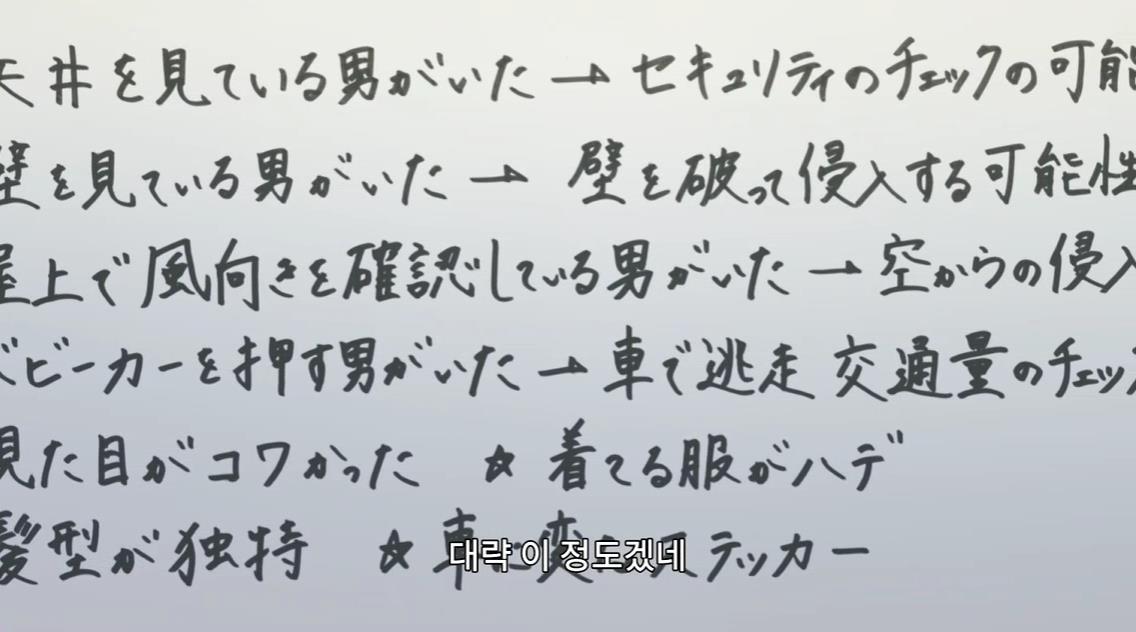 天井を見ている男がいた → セキュリティのチェックの可能
壁を見ている男がいた → 壁を破って侵入する可能性
屋上で風向きを確認している男がいた → 空からの侵入
ベビーカーを押す男がいた → 車で逃走 交通量のチェック
見た目がコワかった ☆ 着てる服がハデ
髪型が独特 ☆ 車に変なステッカー
대략 이 정도겠네